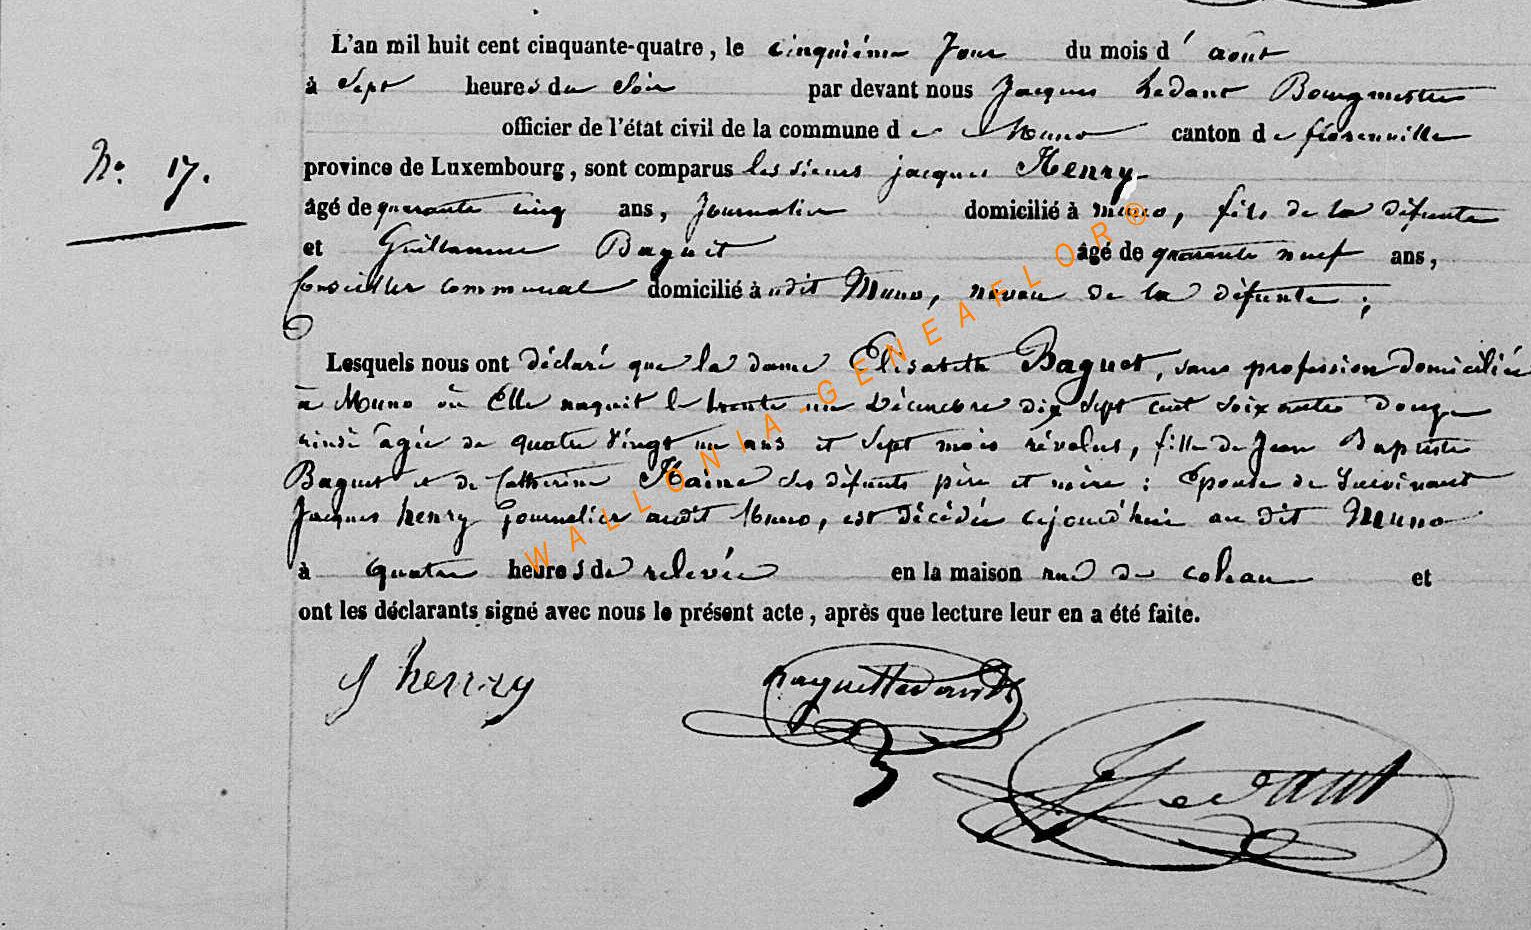 L'an mil huit cent cinquante-quatre, le cinquième Jour du mois d' août
à Sept heures du Soir par devant nous Jacques hedant Bourgmestre
officier de l'état civil de la commune de Muno canton de florenville
province de Luxembourg, sont comparus les sieurs jacques Henry
N° 17.
âgé de quarante cinq ans, Journalier domicilié à muno, fils de la défunte
et Guillaume Baguet âgé de quarante neuf ans,
Conseiller communal domicilié à udit Muno, neveu de la défunte ;
Lesquels nous ont déclaré que la dame Elisabeth Baguet, sans profession domiciliée
à Muno où Elle naquit le trente un Décembre dix Sept cent soixante douze
âgée de quatre vingt un ans et Sept mois révolus, fille de Jean Baptiste
Baguet et de Catherine Haine des défunts père et mère : Epouse de Survivant
Jacques henry journalier audit Muno, est décédée cejourd'hui au dit Muno
à quatre heures de relevée en la maison rue du et
ont les déclarants signé avec nous le présent acte, après que lecture leur en a été faite.
J henry
hedant
WALLONIA-GENEAFLOR®